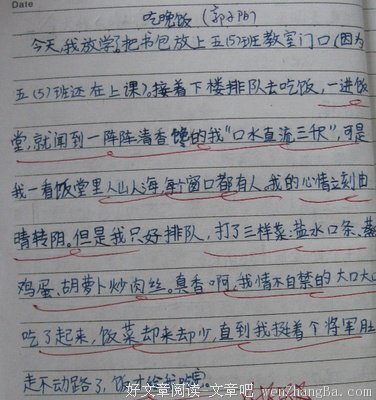 Date
吃晚饭（郭子阳）
今天,我放学了把书包放上五(5)班教室门口(因为
五(5)班还在上课)。接着下楼排队去吃饭,一进饭
堂,就闻到一阵阵清香馋的我“口水直流三尺”,可是
我一看饭堂里人山人海,每个窗口都有人。我的心情立刻由
晴转阴。但是我只好排队,打了三样菜:盐水口条、蒸
鸡蛋、胡萝卜炒肉丝。真香啊,我情不自禁的大口大口
吃了起来,饭菜却来却少,直到我挺着个将军肚
走不动路了,饭才
好文章阅读-文章吧 wenzhangBa.com